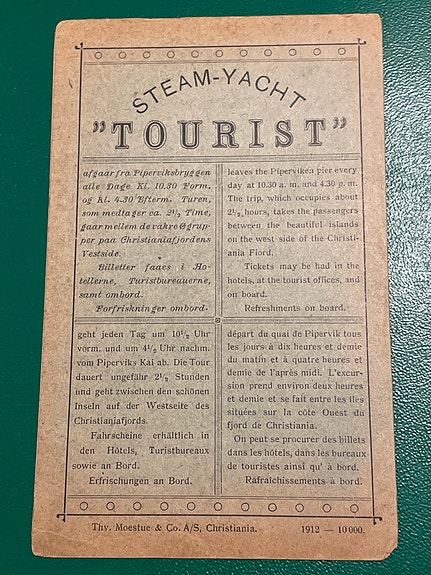 STEAM-YACHT
"TOURIST"
afgaar fra Piperviksbryggen
alle Dage Kl. 10.30 Form.
og Kl. 4.30 Efterm. Turen,
som medtager ca. 2½ Time,
gaar mellem de vakre Øgrup-
per paa Christianiafjordens
Vestside.
Billetter faaes i Ho-
tellerne, Turistbureauerne,
samt ombord.
Forfriskninger ombord.
leaves the Pipervikea pier every
day at 10.30 a. m. and 4.30 p. m.
The trip, which occupies about
2½ hours, takes the passengers
between the beautifel islands
on the west side of the Christi-
ania Fiord.
Tickets may be had in the
hotels, at the tourist offices, and
on board.
Refreshments on board.
geht jeden Tag um 10½ Uhr
vorm. und um 4½ Uhr nachm.
vom Piperviks Kai ab. Die Tour
dauert ungefähr 2½ Stunden
und geht zwischen den schönen
Inseln auf der Westseite des
Christianiafjords.
Fahrscheine erhältlich in
den Hôtels, Turistbureaux
sowie an Bord.
Erfrischungen an Bord.
départ du quai de Pipervik tous
les jours à dix heures et demie
du matin et à quatre heures et
demie de l'après midi. L'excur-
sion prend environ deux heures
et demie et se fait entre les îles
situées sur la côte Ouest du
fjord de Christiania.
On peut se procurer des billets
dans les hôtels, dans les bureaux
de touristes ainsi qu' à bord.
Rafraichissements à bord.
Thv. Moestue & Co. A/S, Christiania. 1912 — 10000.